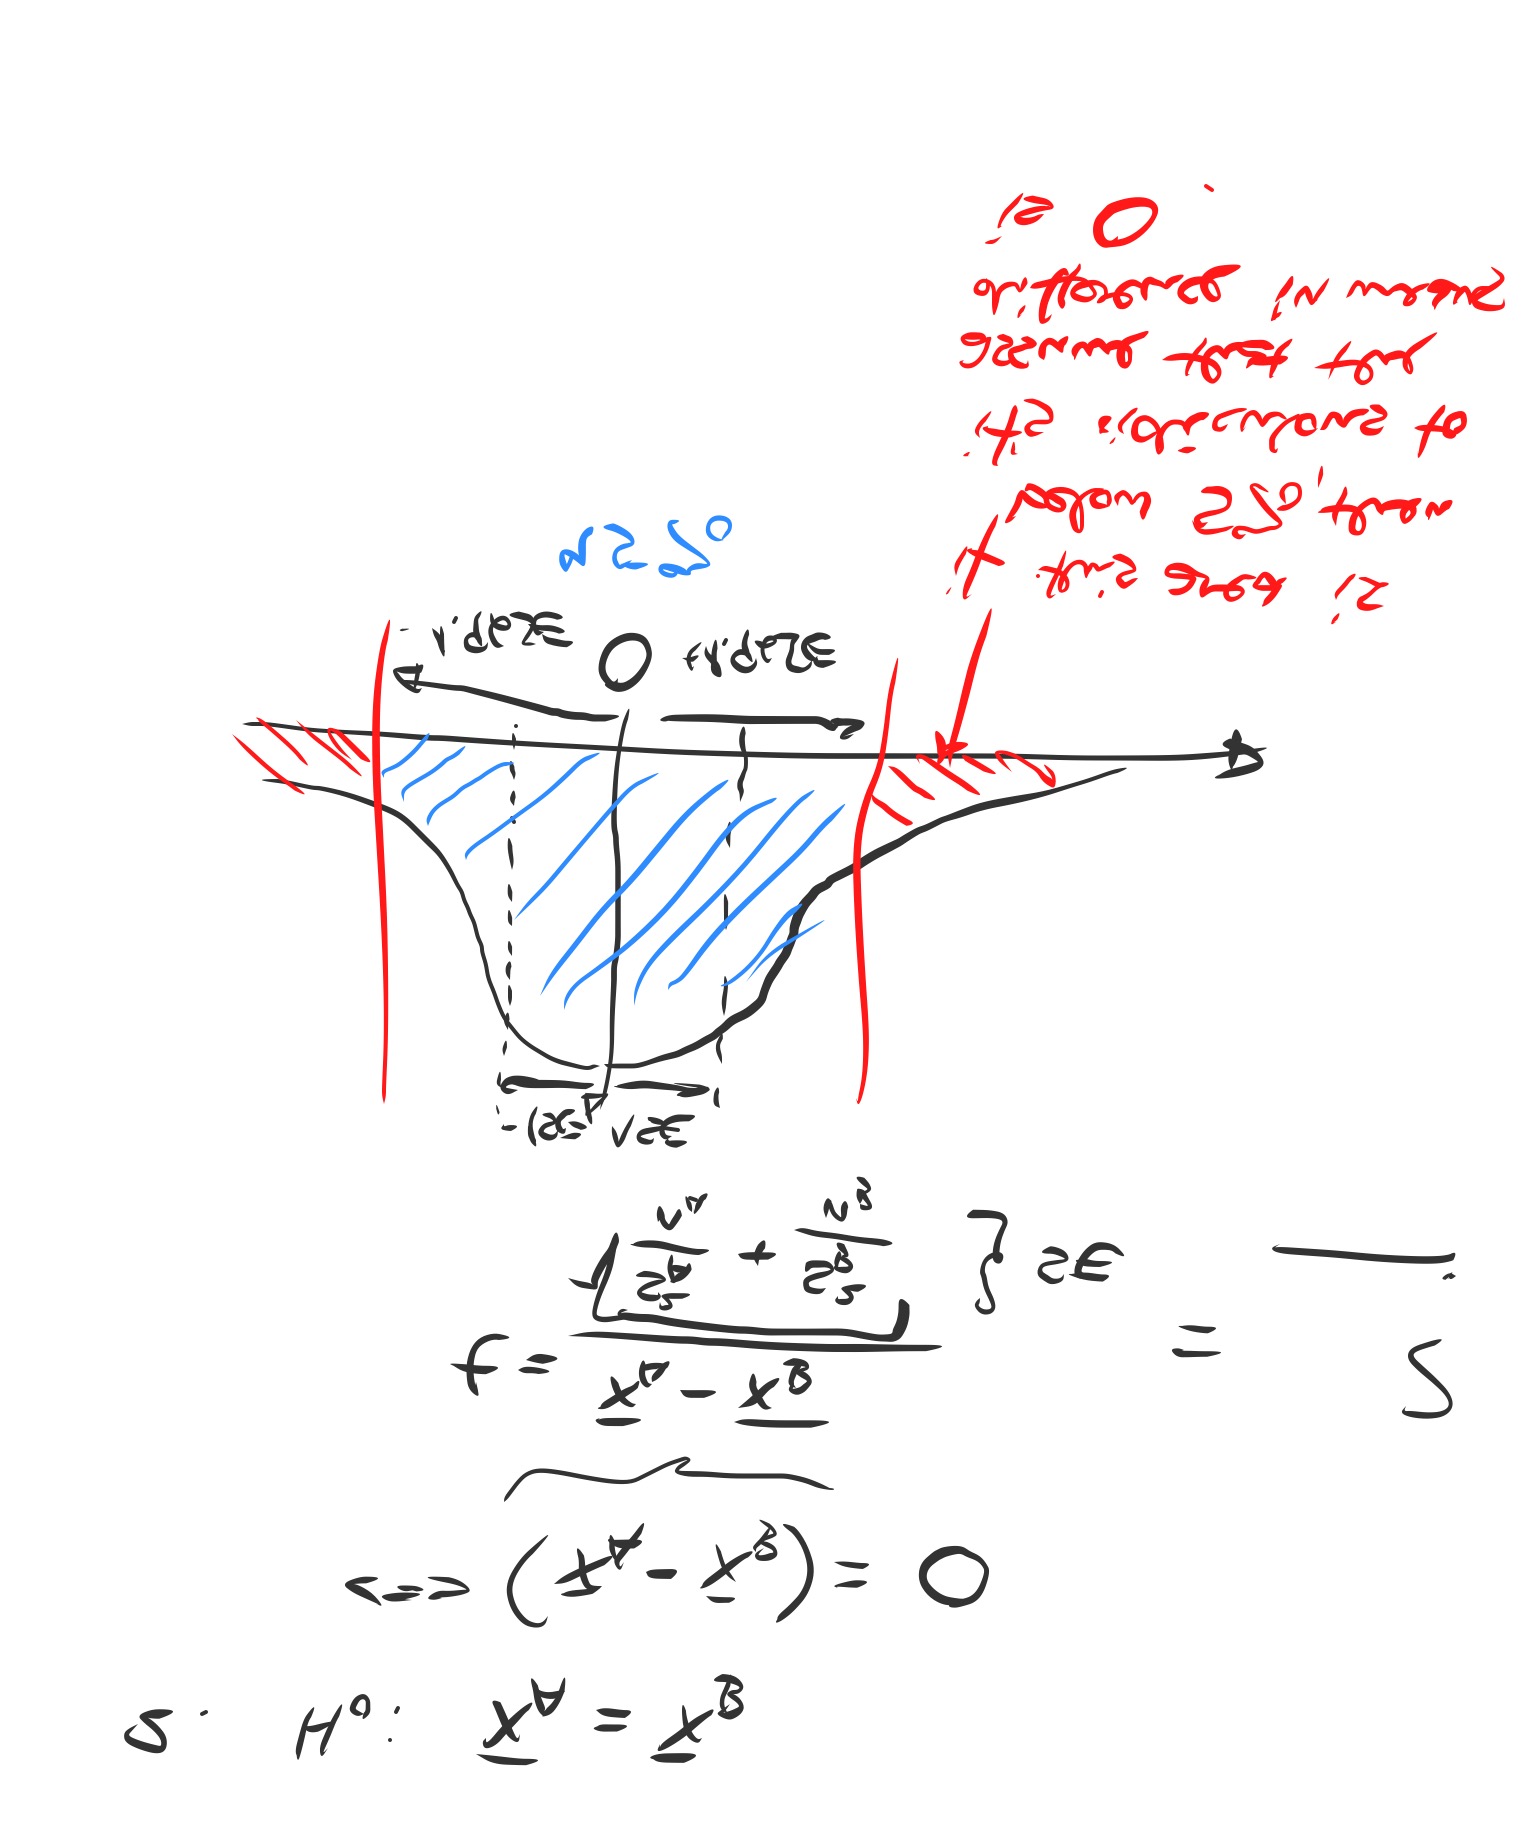 2. H₀: x̄_A = x̄_B
<=> (x̄_A - x̄_B) = 0
t = (x̄_A - x̄_B) / √(S²_A/n_A + S²_B/n_B) } SE = ?
-1SE 1SE
-1.96SE 0 +1.96SE
95%
if this area is
below 5%, then
it's ridiculous to
assume that the
difference in means
is 0.